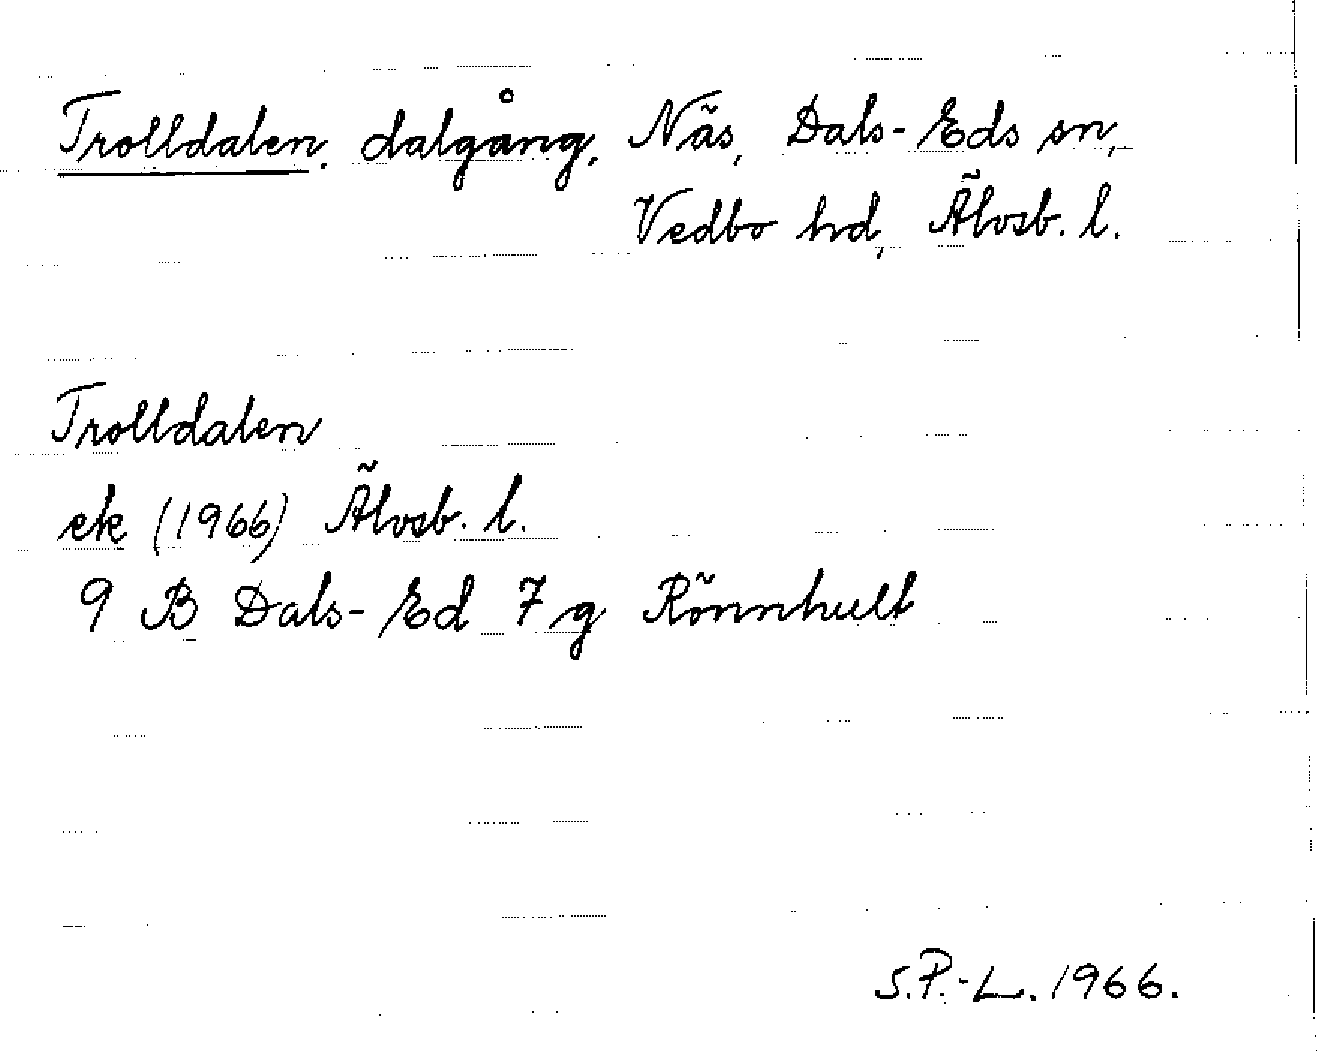 Trolldalen, dalgång, Näs, Dals-Eds sn,
Vedbo hd, Älvsb. l.
Trolldalen
ek (1966) Älvsb. l.
9 B Dals-Ed 7 g Rönnhult
S.P.-L. 1966.